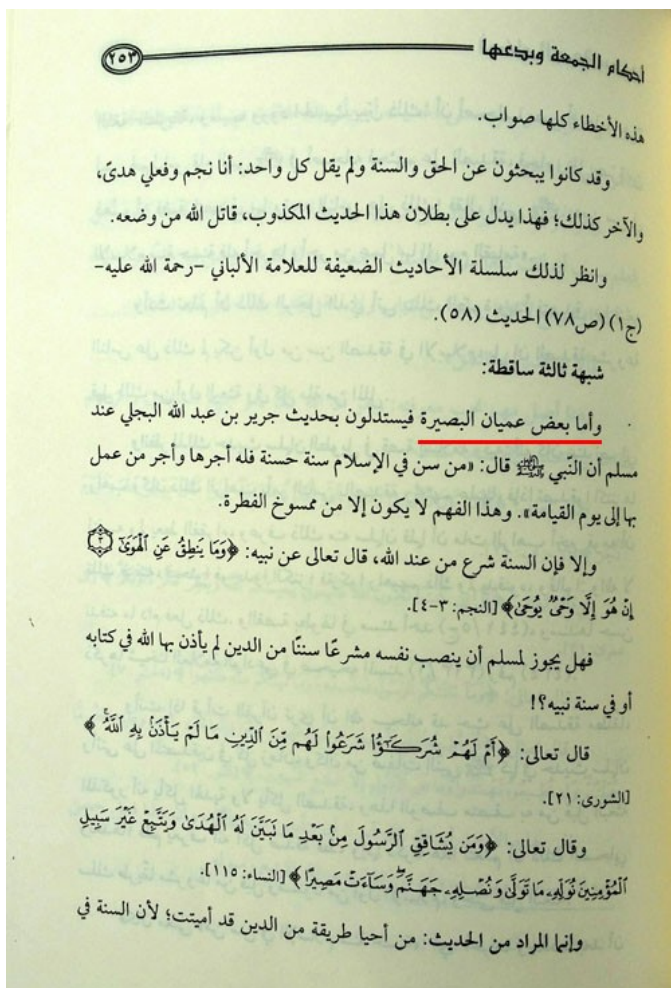 أحكام الجمعة وبدعها
٢٥٣
هذه الأخطاء كلها صواب.
وقد كانوا يبحثون عن الحق والسنة ولم يقل كل واحد: أنا نجم وفعلي هدىً،
والآخر كذلك؛ فهذا يدل على بطلان هذا الحديث المكذوب، قاتل الله من وضعه.
وانظر لذلك سلسلة الأحاديث الضعيفة للعلامة الألباني –رحمة الله عليه–
(ج١) (ص٧٨) الحديث (٥٨).
شبهة ثالثة ساقطة:
وأما بعض عميان البصيرة فيستدلون بحديث جرير بن عبد الله البجلي عند
مسلم أن النّبي ﷺ قال: «من سن في الإسلام سنة حسنة فله أجرها وأجر من عمل
بها إلى يوم القيامة». وهذا الفهم لا يكون إلا من ممسوخ الفطرة.
وإلا فإن السنة شرع من عند الله، قال تعالى عن نبيه: ﴿وَمَا يَنطِقُ عَنِ ٱلْهَوَىٰٓ ۝٣
إِنْ هُوَ إِلَّا وَحْىٌ يُوحَىٰ﴾ [النجم: ٣-٤].
فهل يجوز لمسلم أن ينصب نفسه مشرعًا سننًا من الدين لم يأذن بها الله في كتابه
أو في سنة نبيه؟!
قال تعالى: ﴿أَمْ لَهُمْ شُرَكَـٰٓؤُا۟ شَرَعُوا۟ لَهُم مِّنَ ٱلدِّينِ مَا لَمْ يَأْذَنۢ بِهِ ٱللَّهُ ۚ﴾
[الشورى: ٢١].
وقال تعالى: ﴿وَمَن يُشَاقِقِ ٱلرَّسُولَ مِنۢ بَعْدِ مَا تَبَيَّنَ لَهُ ٱلْهُدَىٰ وَيَتَّبِعْ غَيْرَ سَبِيلِ
ٱلْمُؤْمِنِينَ نُوَلِّهِۦ مَا تَوَلَّىٰ وَنُصْلِهِۦ جَهَنَّمَ ۖ وَسَآءَتْ مَصِيرًا﴾ [النساء: ١١٥].
وإنما المراد من الحديث: من أحيا طريقة من الدين قد أميتت؛ لأن السنة في